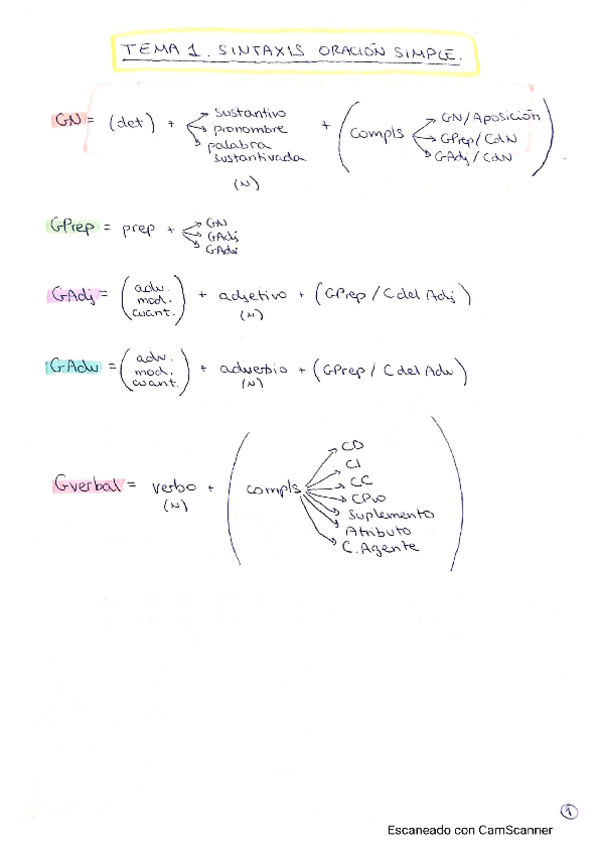 TEMA 1. SINTAXIS ORACIÓN SIMPLE.
GN = (det) + sustantivo
pronombre
palabra sustantivada
(N)
+ (compls GN/Aposición
GPrep/CdN
GAdj/CdN)
GPrep = prep + GN
GAdj
GAdv
GAdj = (adv. mod. cuant.) + adjetivo + (GPrep/C del Adj)
(N)
GAdv = (adv. mod. cuant.) + adverbio + (GPrep/C del Adv)
(N)
Gverbal = verbo + (compls
(N)
CD
CI
CC
CPvo
Suplemento
Atributo
C. Agente)
1
Escaneado con CamScanner